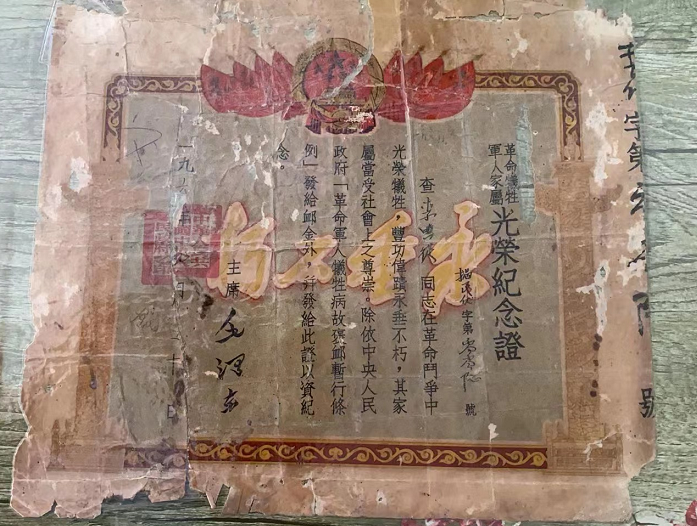 革命犧牲
軍人家屬
光榮紀念證
字第
號
查
同志在革命鬥爭中
光榮犧牲，豐功偉蹟永垂不朽，其家
屬當受社會上之尊崇。除依中央人民
政府「革命軍人犧牲病故褒卹暫行條
例」發給卹金外，并發給此證以資紀
念。
主席
毛澤東
一九
年
月
十
日
永垂不朽
字第
號